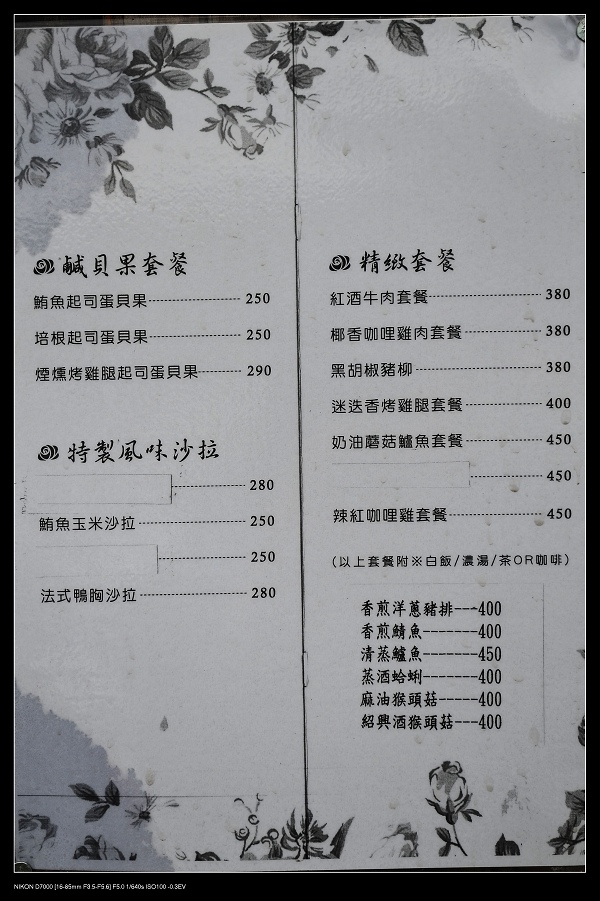 鹹貝果套餐
鮪魚起司蛋貝果 250
培根起司蛋貝果 250
煙燻烤雞腿起司蛋貝果 290
特製風味沙拉
280
鮪魚玉米沙拉 250
250
法式鴨胸沙拉 280
精緻套餐
紅酒牛肉套餐 380
椰香咖哩雞肉套餐 380
黑胡椒豬柳 380
迷迭香烤雞腿套餐 400
奶油蘑菇鱸魚套餐 450
450
辣紅咖哩雞套餐 450
(以上套餐附※白飯/濃湯/茶OR咖啡)
香煎洋蔥豬排---400
香煎鯖魚-------400
清蒸鱸魚-------450
蒸酒蛤蜊-------400
麻油猴頭菇-----400
紹興酒猴頭菇---400
NIKON D7000 [16-85mm F3.5-F5.6] F5.0 1/640s ISO100 -0.3EV